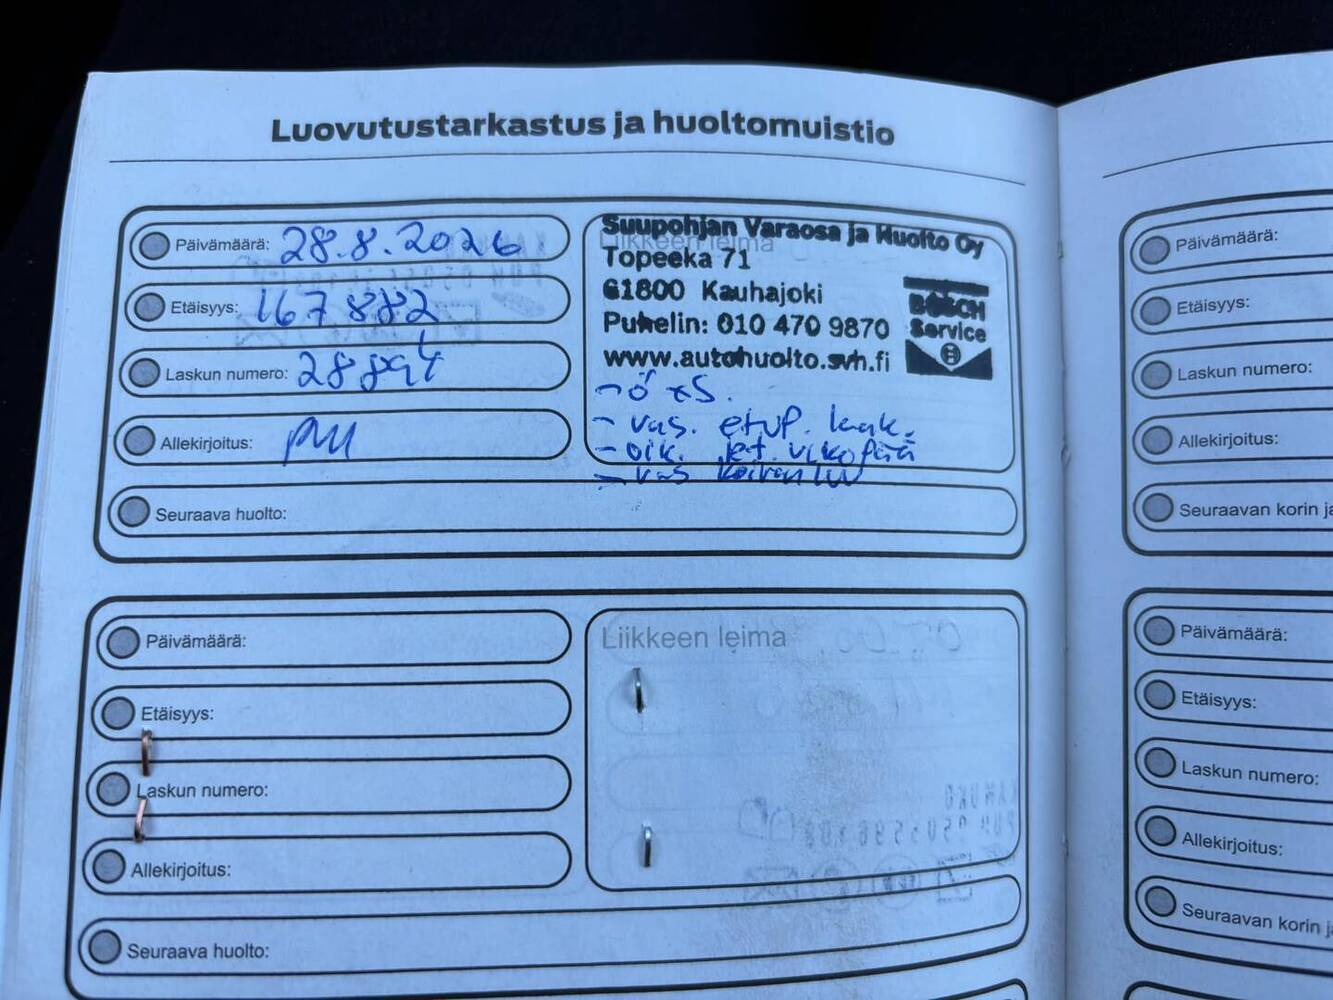 Luovutustarkastus ja huoltomuistio
Päivämäärä: 28.8.2026
Etäisyys: 167882
Laskun numero: 28894
Allekirjoitus:
Seuraava huolto:
Liikkeen leima
Suupohjan Varaosa ja Huolto Oy
Topeeka 71
61800 Kauhajoki
Puhelin: 010 470 9870
www.autohuolto.svh.fi
BOSCH
Service
- ö +s.
- vas. etup. laak.
- oik. jet. ulkopää
- vas koiranluu
Päivämäärä:
Etäisyys:
Laskun numero:
Allekirjoitus:
Seuraava huolto:
Liikkeen leima
Päivämäärä:
Etäisyys:
Laskun numero:
Allekirjoitus:
Seuraavan korin
Päivämäärä:
Etäisyys:
Laskun numero:
Allekirjoitus:
Seuraavan korin